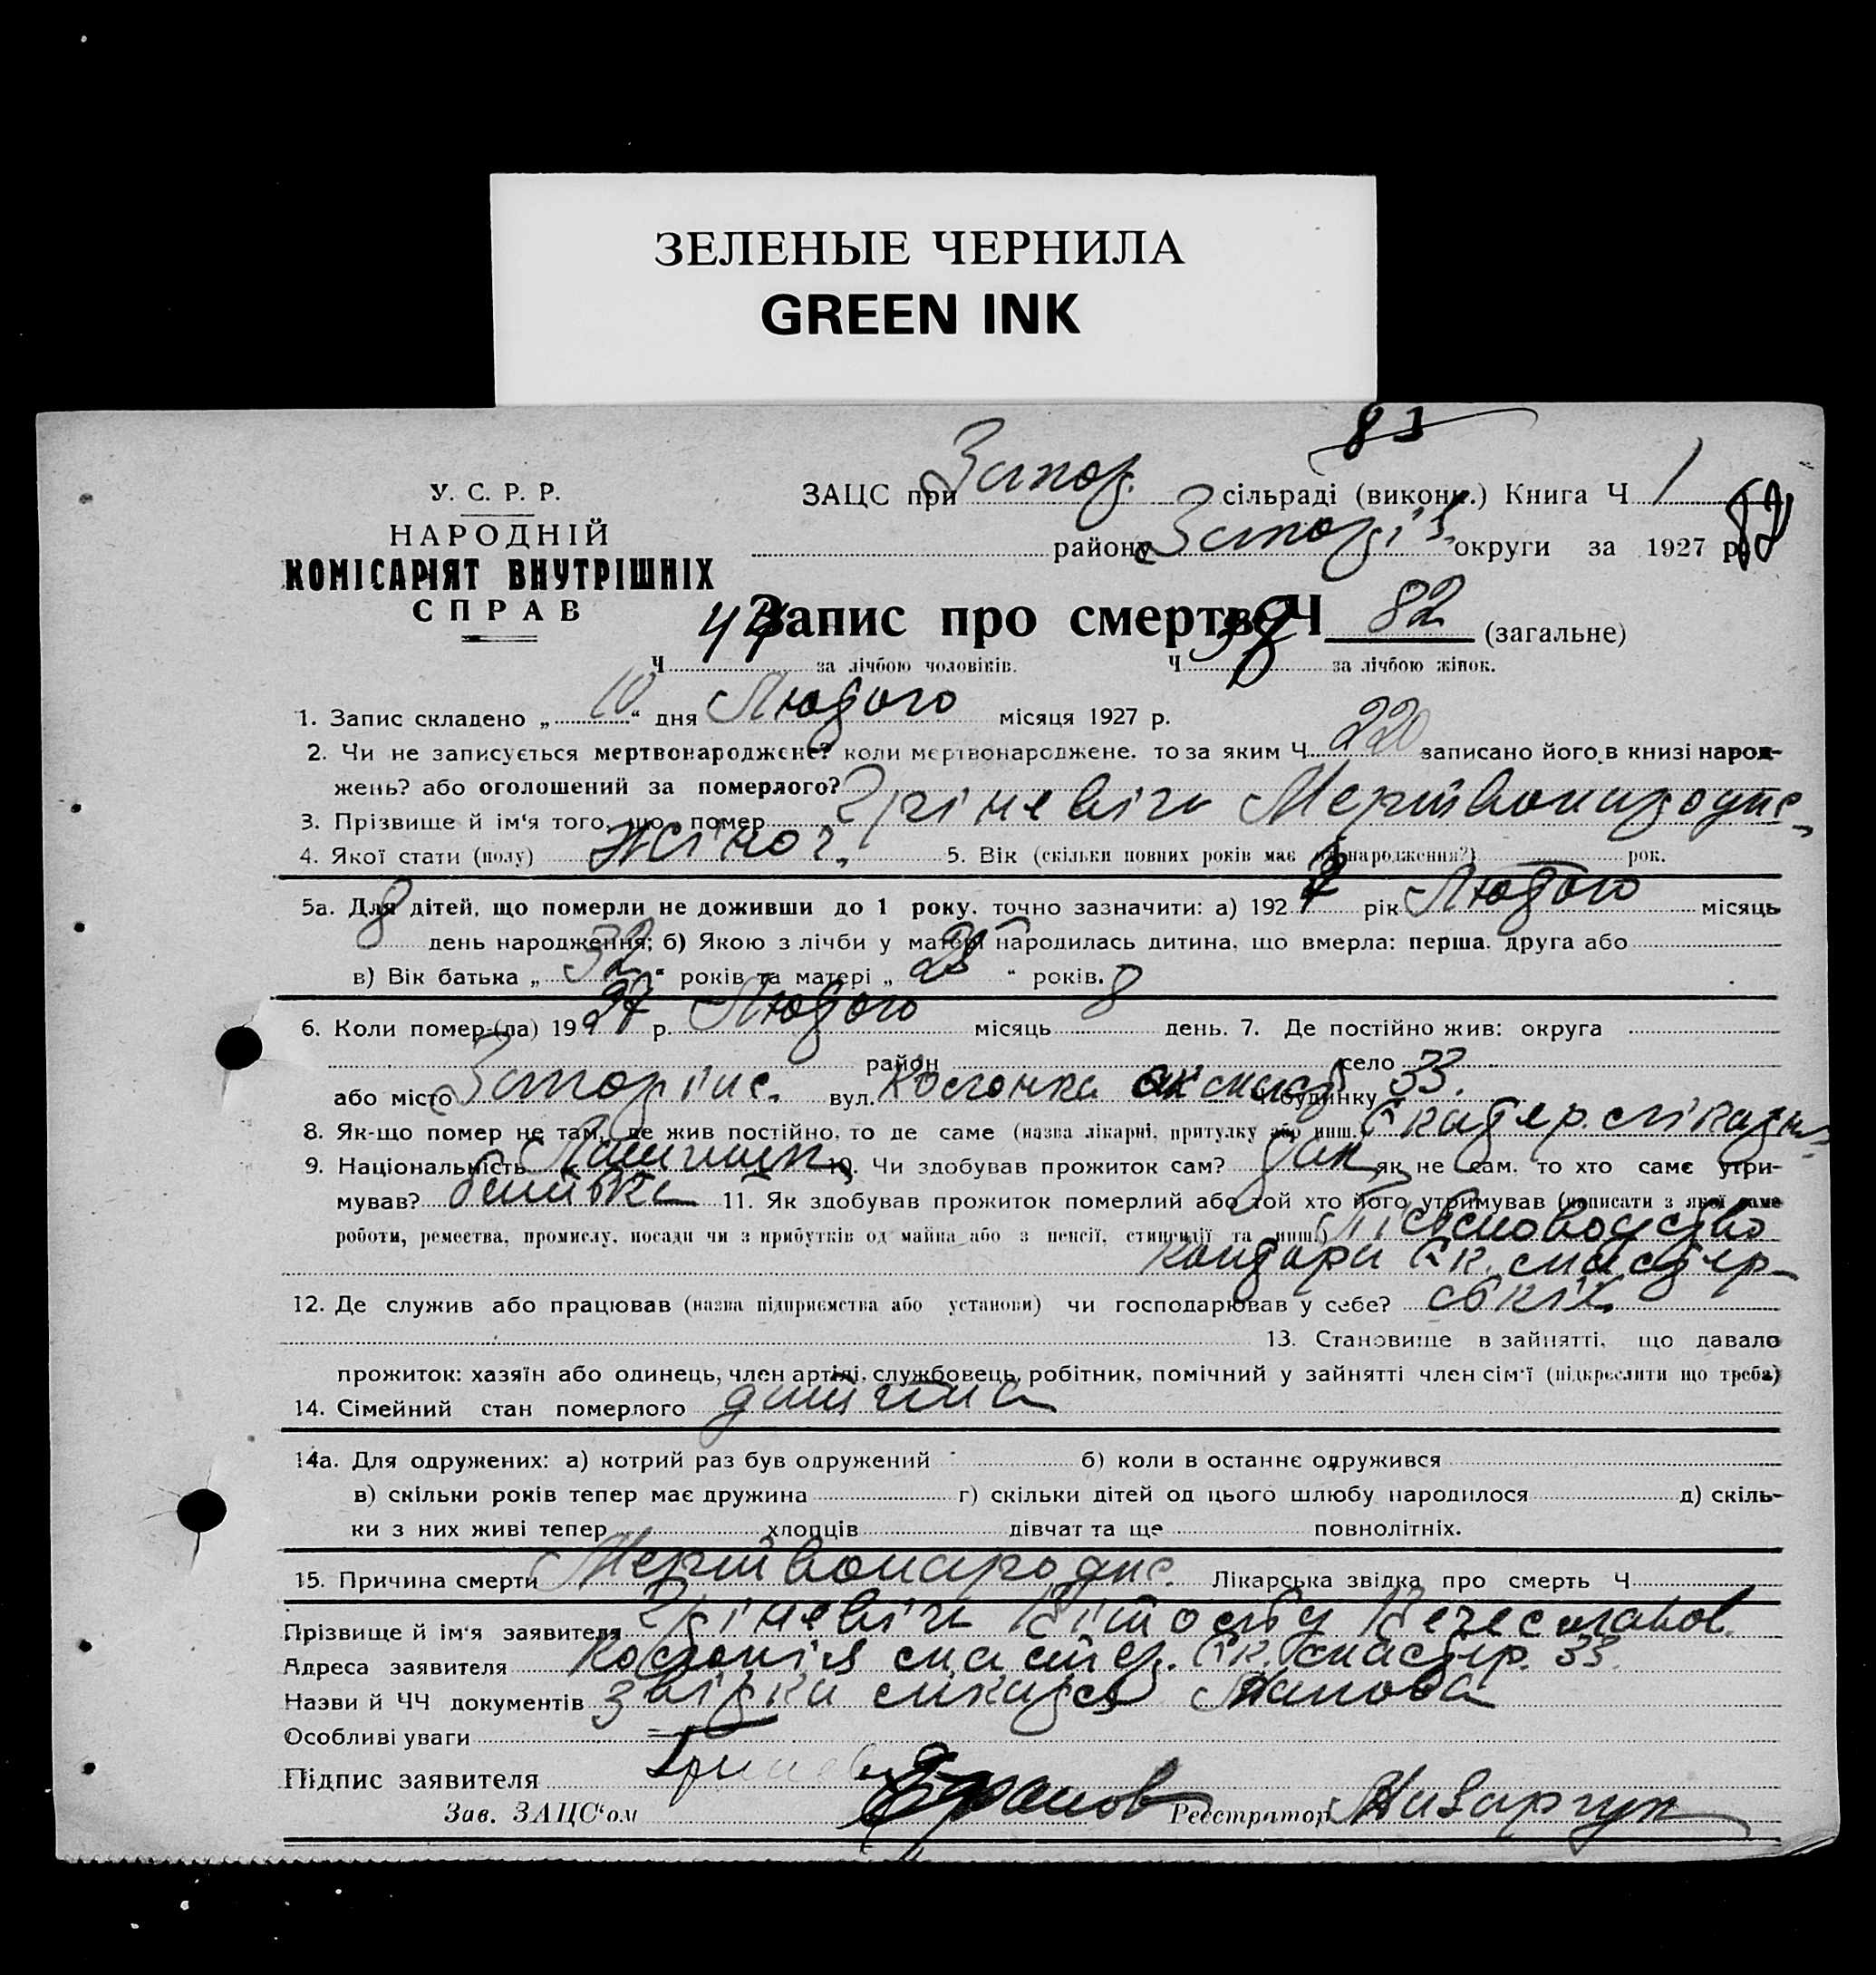 ЗЕЛЕНЫЕ ЧЕРНИЛА
GREEN INK
83
У. С. Р. Р.
НАРОДНІЙ
КОМІСАРІЯТ ВНУТРІШНІХ
СПРАВ
ЗАЦС при Запор. сільраді (викони.) Книга Ч 1
району Запоріз. округи за 1927 р. 82
Запис про смерть Ч 82 (загальне)
Ч 44 за лічбою чоловіків. Ч 38 за лічбою жінок.
1. Запис складено „ 10 “ дня Лютого місяця 1927 р.
2. Чи не записується мертвонароджене? коли мертвонароджене, то за яким Ч 220 записано його в книзі народ-
жень? або оголошений за померлого?
3. Прізвище й ім'я того, що помер Гріневіч Мертвонародне
4. Якої стати (полу) Жіноч. 5. Вік (скільки повних років має від народження?) рок.
5а. Для дітей, що померли не доживши до 1 року, точно зазначити: а) 1927 рік Лютого місяць
8 день народження; б) Якою з лічби у матері народилась дитина, що вмерла: перша, друга або
в) Вік батька „ 32 “ років та матері „ 23 “ років.
6. Коли помер-(ла) 1927 р. Лютого місяць 8 день. 7. Де постійно жив: округа
район село
або місто Запоріжє. вул. будинку 33.
8. Як-що помер не там, де жив постійно, то де саме (назва лікарні, притулку або инш.)
9. Національність 10. Чи здобував прожиток сам? як не сам, то хто саме утри-
мував? батько 11. Як здобував прожиток померлий або той хто його утримував (написати з якої саме
роботи, ремества, промислу, посади чи з прибутків од майна або з пенсії, стипендії та инш.)
12. Де служив або працював (назва підприємства або установи) чи господарював у себе?
13. Становище в зайнятті, що давало
прожиток: хазяїн або одинець, член артілі, службовець, робітник, помічний у зайнятті член сім'ї (підкреслити що треба)
14. Сімейний стан померлого дитина
14а. Для одружених: а) котрий раз був одружений б) коли в останнє одружився
в) скільки років тепер має дружина г) скільки дітей од цього шлюбу народилося д) скіль-
ки з них живі тепер хлопців дівчат та ще повнолітніх.
15. Причина смерти Мертвонародне. Лікарська звідка про смерть Ч
Прізвище й ім'я заявителя Гріневіч
Адреса заявителя 33.
Назви й ЧЧ документів звідка лікаря
Особливі уваги
Підпис заявителя
Зав. ЗАЦС'ом Реєстратор